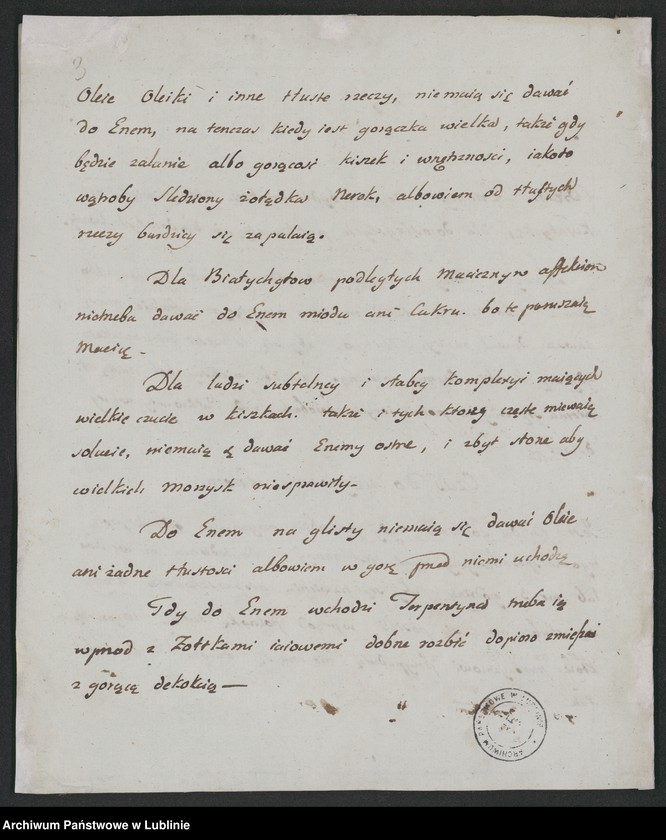 3
Oleie Oleiki i inne tłuste rzeczy, niemaią się dawać
do Enem, na tenczas kiedy iest gorączka wielka, także gdy
będzie zalanie albo gorącość kiszek i wnętrzności, iakoto
wątroby Sledziony żołądka Nerek, albowiem od tłustych
rzeczy bardziey się zapalaią.
Dla Białychgłow podległych Macicznym affekciom
nietrzeba dawać do Enem miodu ani Cukru. bo te poruszaią
Macicę.
Dla ludzi subtelney i słabey komplexyi maiących
wielkie czucie w kiszkach. także i tych ktorzy częste miewaią
solucie, niemaią ę dawać Enemy ostre, i zbyt słone aby
wielkich niesprawiły-
Do Enem na glisty niemaią się dawać Oleie
ani żadne tłustości albowiem w gorę przed niemi uchodzą
Gdy do Enem wchodzi Terpentyna trzeba ią
wprzod z Żołtkami iaiowemi dobrze rozbić dopiero zmieszać
z gorącą dekokcią —
ARCHIWUM PAŃSTWOWE W LUBLINIE
Archiwum Państwowe w Lublinie